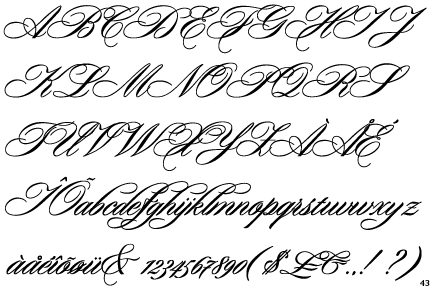 ABCDEFGHIJ
KLMNOPQRS
TUVWXYZÀÅÉ
ÎÕabcdefghijklmnopqrstuvwxyz
àåéîõøü& 1234567890($£€.,!?)
43